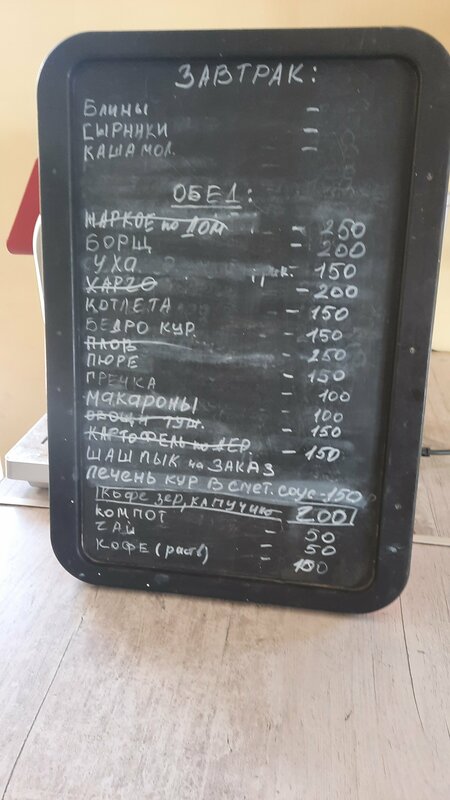 ЗАВТРАК:
БЛИНЫ -
СЫРНИКИ -
КАША МОЛ. -
ОБЕД:
ЖАРКОЕ по ДОМ - 250
БОРЩ - 200
УХА - 150
ХАРЧО - 200
КОТЛЕТА - 150
БЕДРО КУР. - 150
ПЛОВ - 250
ПЮРЕ - 150
ГРЕЧКА - 100
МАКАРОНЫ - 100
ОВОЩИ ТУШ. - 150
КАРТОФЕЛЬ по ДЕР. - 150
ШАШЛЫК на ЗАКАЗ
ПЕЧЕНЬ КУР В СМЕТ. СОУС - 150
КОФЕ ЗЕР, КАПУЧИНО 200
КОМПОТ - 50
ЧАЙ - 50
КОФЕ (раств) - 100